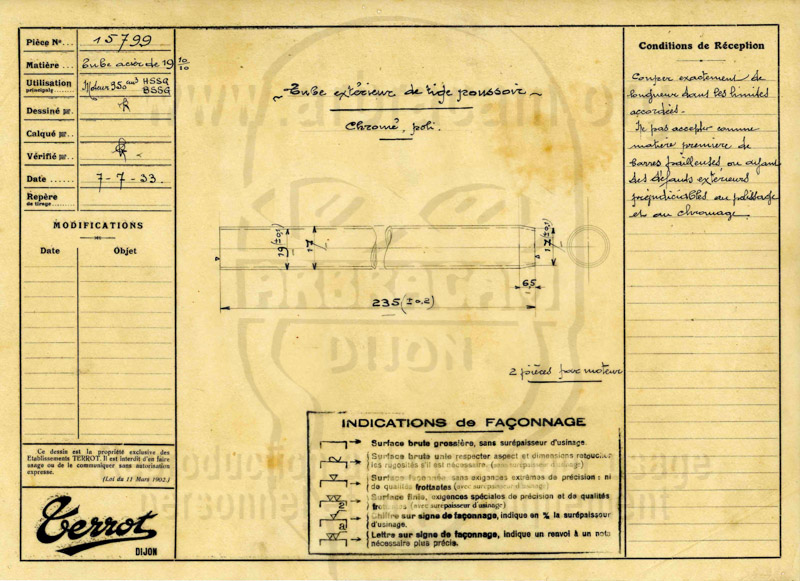 Pièce No... 15799
Matière... Tube acier de 19 10/10
Utilisation principale Moteur 350 cm3 HSSG
BSSG
Dessiné par...
Calqué par...
Vérifié par...
Date... 7-7-33.
Repère
de tirage...
MODIFICATIONS
Date Objet
Ce dessin est la propriété exclusive des
Etablissements TERROT. Il est interdit d'en faire
usage ou de le communiquer sans autorisation
expresse.
(Loi du 11 Mars 1902.)
Terrot
DIJON
~ Tube extérieur de tige poussoir ~
Chromé, poli.
19 (±0,1)
17
17 (±0,1)
6,5
235 (±0,2)
ABRACAM
DIJON
2 pièces par moteur
INDICATIONS de FAÇONNAGE
Surface brute grossière, sans surépaisseur d'usinage.
Surface brute unie respecter aspect et dimensions retoucher
les rugosités s'il est nécessaire. (sans surépaisseur d'usinage)
Surface façonnée sans exigences extrêmes de précision : ni
de qualités frottantes (avec surépaisseur d'usinage)
Surface finie, exigences spéciales de précision et de qualités
frottantes (avec surépaisseur d'usinage)
2 Chiffre sur signe de façonnage, indique en % la surépaisseur
d'usinage.
a Lettre sur signe de façonnage, indique un renvoi à un nota
nécessaire plus précis.
Conditions de Réception
Couper exactement de
longueur dans les limites
accordées.
Ne pas accepter comme
matière première de
barres pailleuses ou ayant
des défauts extérieurs
préjudiciables au polissage
et au chromage